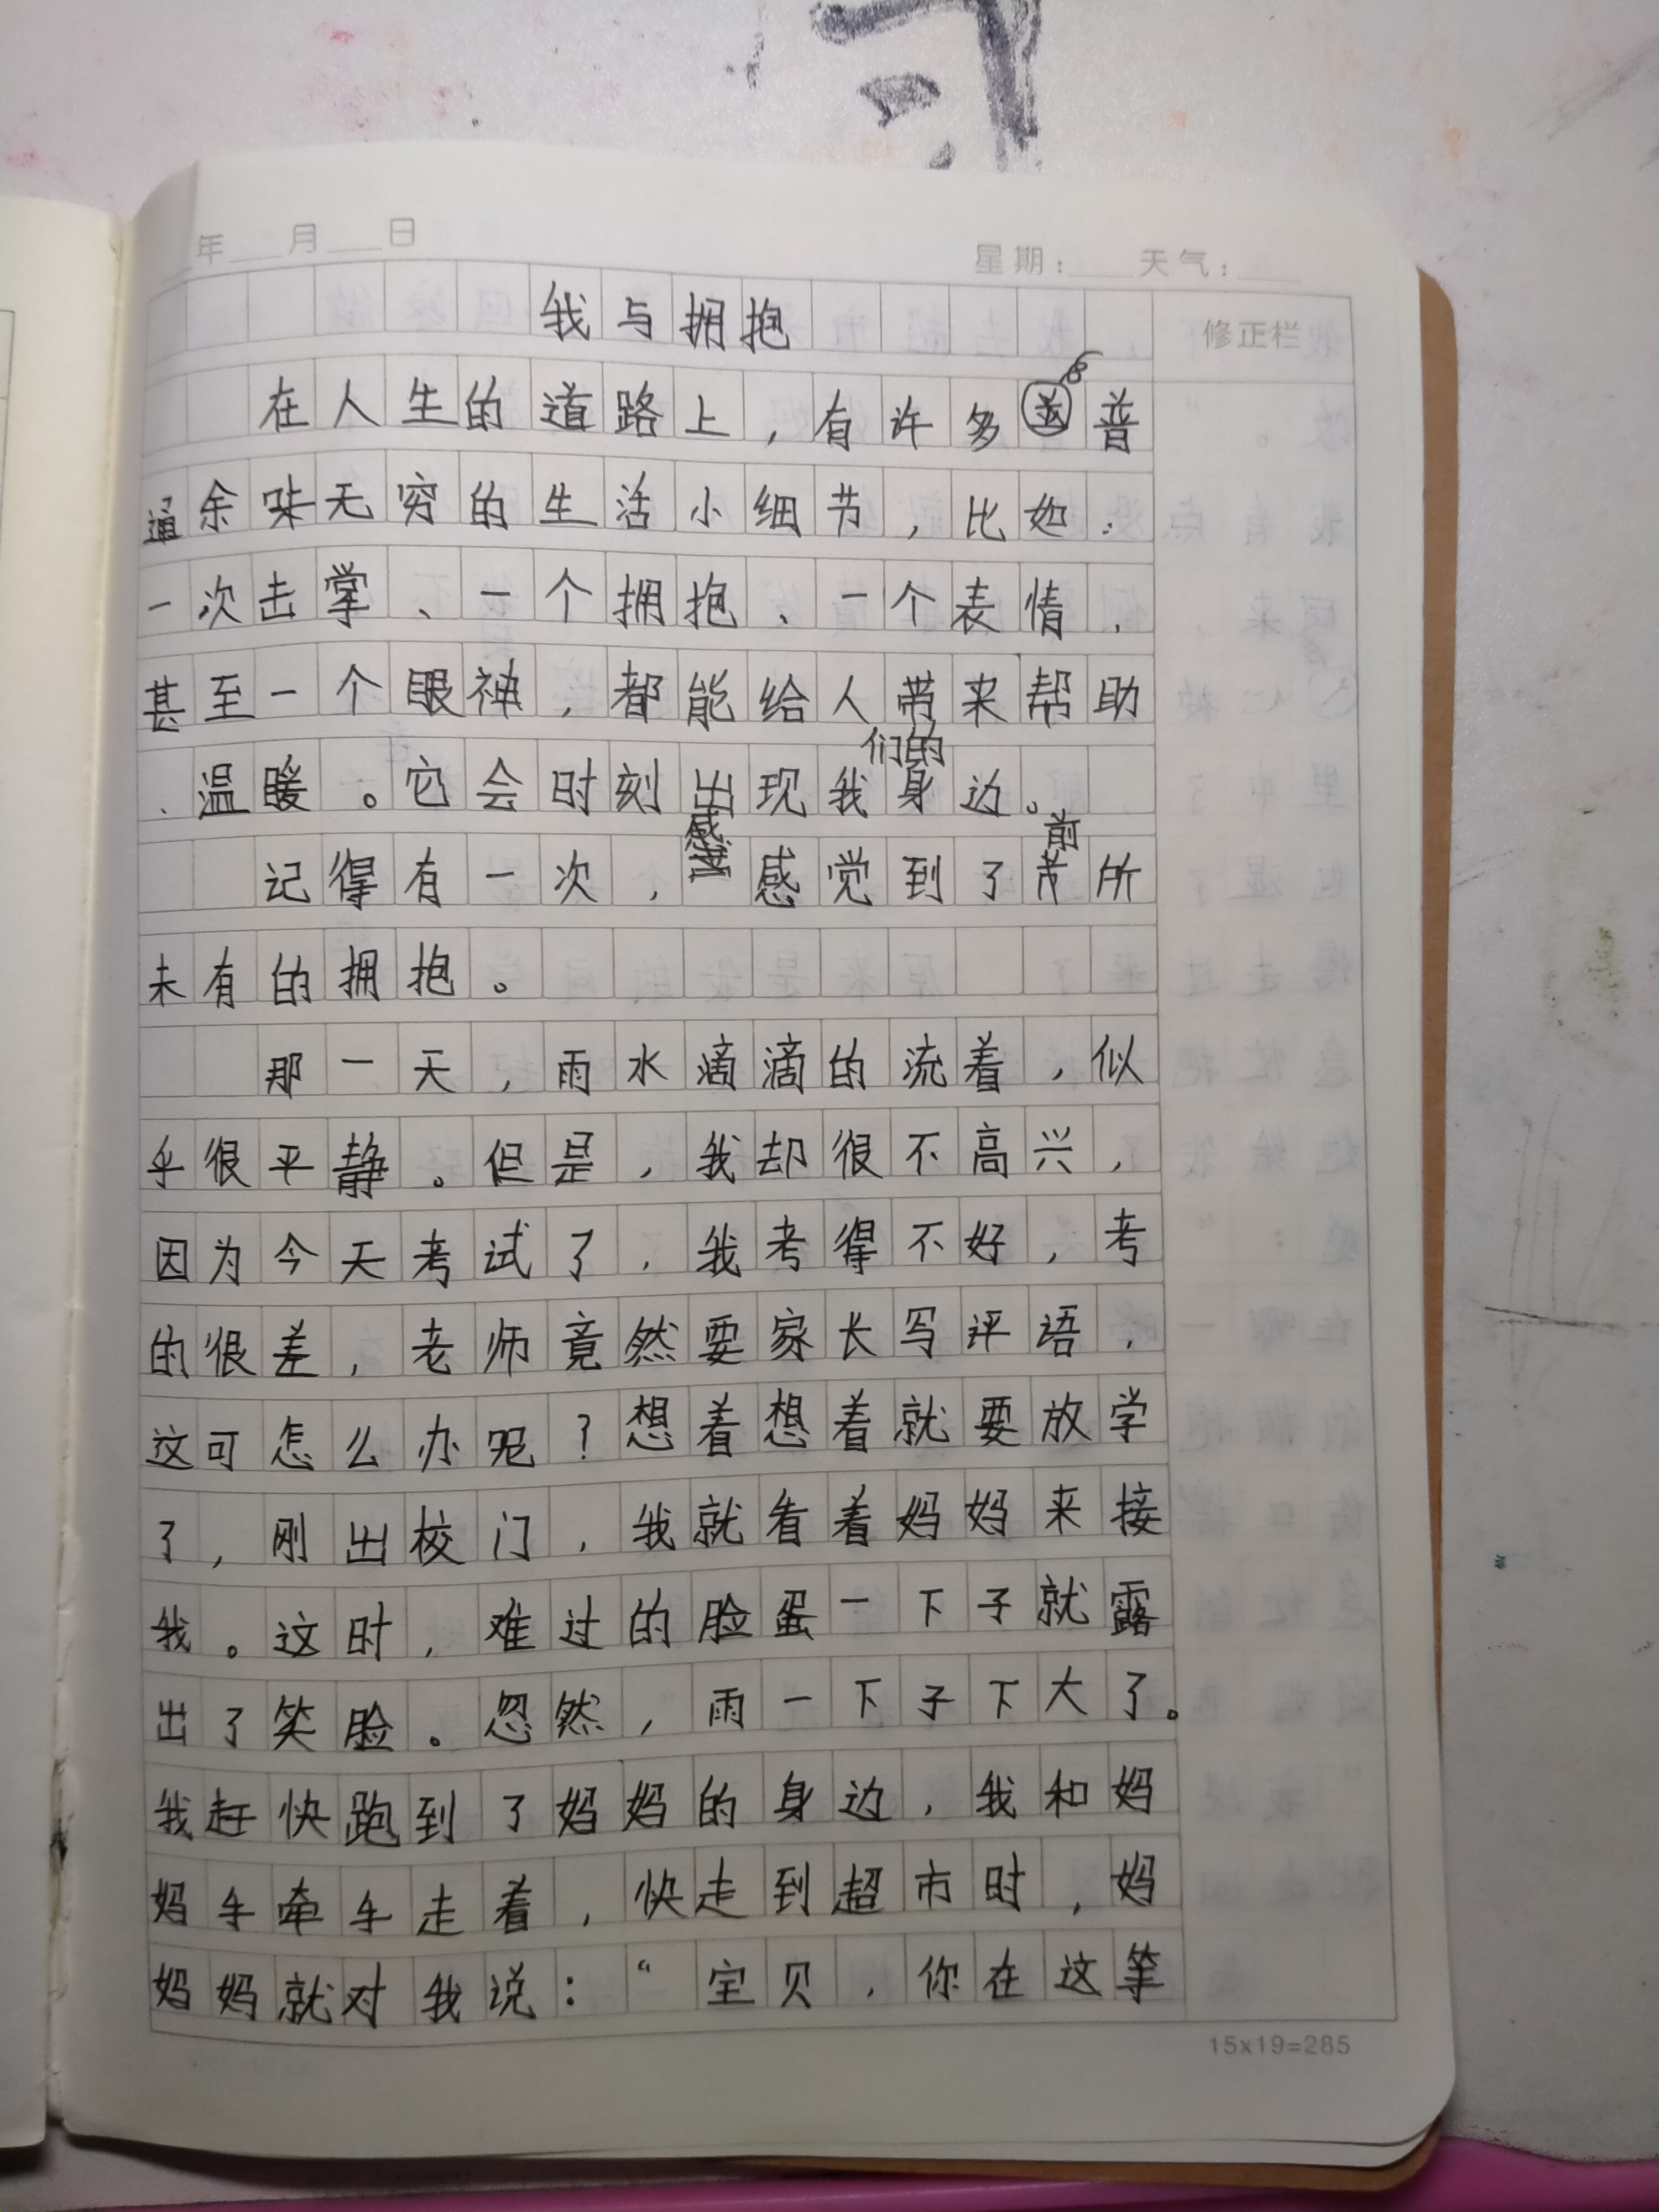 年 月 日
星期： 天气：
我与拥抱
修正栏
在人生的道路上，有许多普
通余味无穷的生活小细节，比如：
一次击掌、一个拥抱、一个表情，
甚至一个眼神，都能给人带来帮助
、温暖。它会时刻出现我们的身边。
记得有一次，感感觉到了前所
未有的拥抱。
那一天，雨水滴滴的流着，似
乎很平静。但是，我却很不高兴，
因为今天考试了，我考得不好，考
的很差，老师竟然要家长写评语，
这可怎么办呢？想着想着就要放学
了，刚出校门，我就看着妈妈来接
我。这时，难过的脸蛋一下子就露
出了笑脸。忽然，雨一下子下大了。
我赶快跑到了妈妈的身边，我和妈
妈手牵手走着，快走到超市时，妈
妈妈就对我说：“宝贝，你在这等
15x19=285